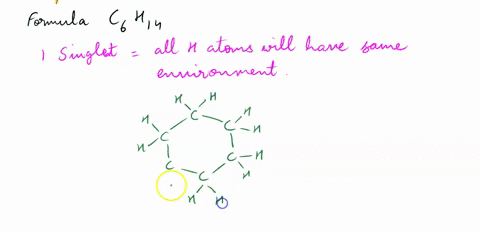 Formula C6H14
1 Singlet = all H atoms will have same
environment.
H H
H C H
C C H
H
C C H
C H
H H